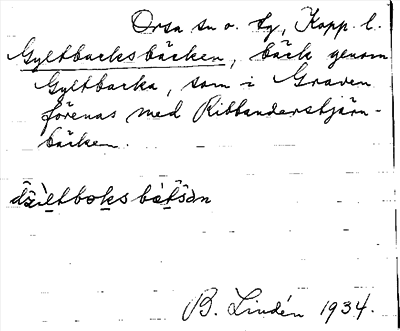 Orsa sn o. tg, Kopp. l.
Gyltbacksbäcken, bäck genom
Gyltbacka, som i Graven
förenas med Ribbanderstjärn-
bäcken.
B. Lindén 1934.